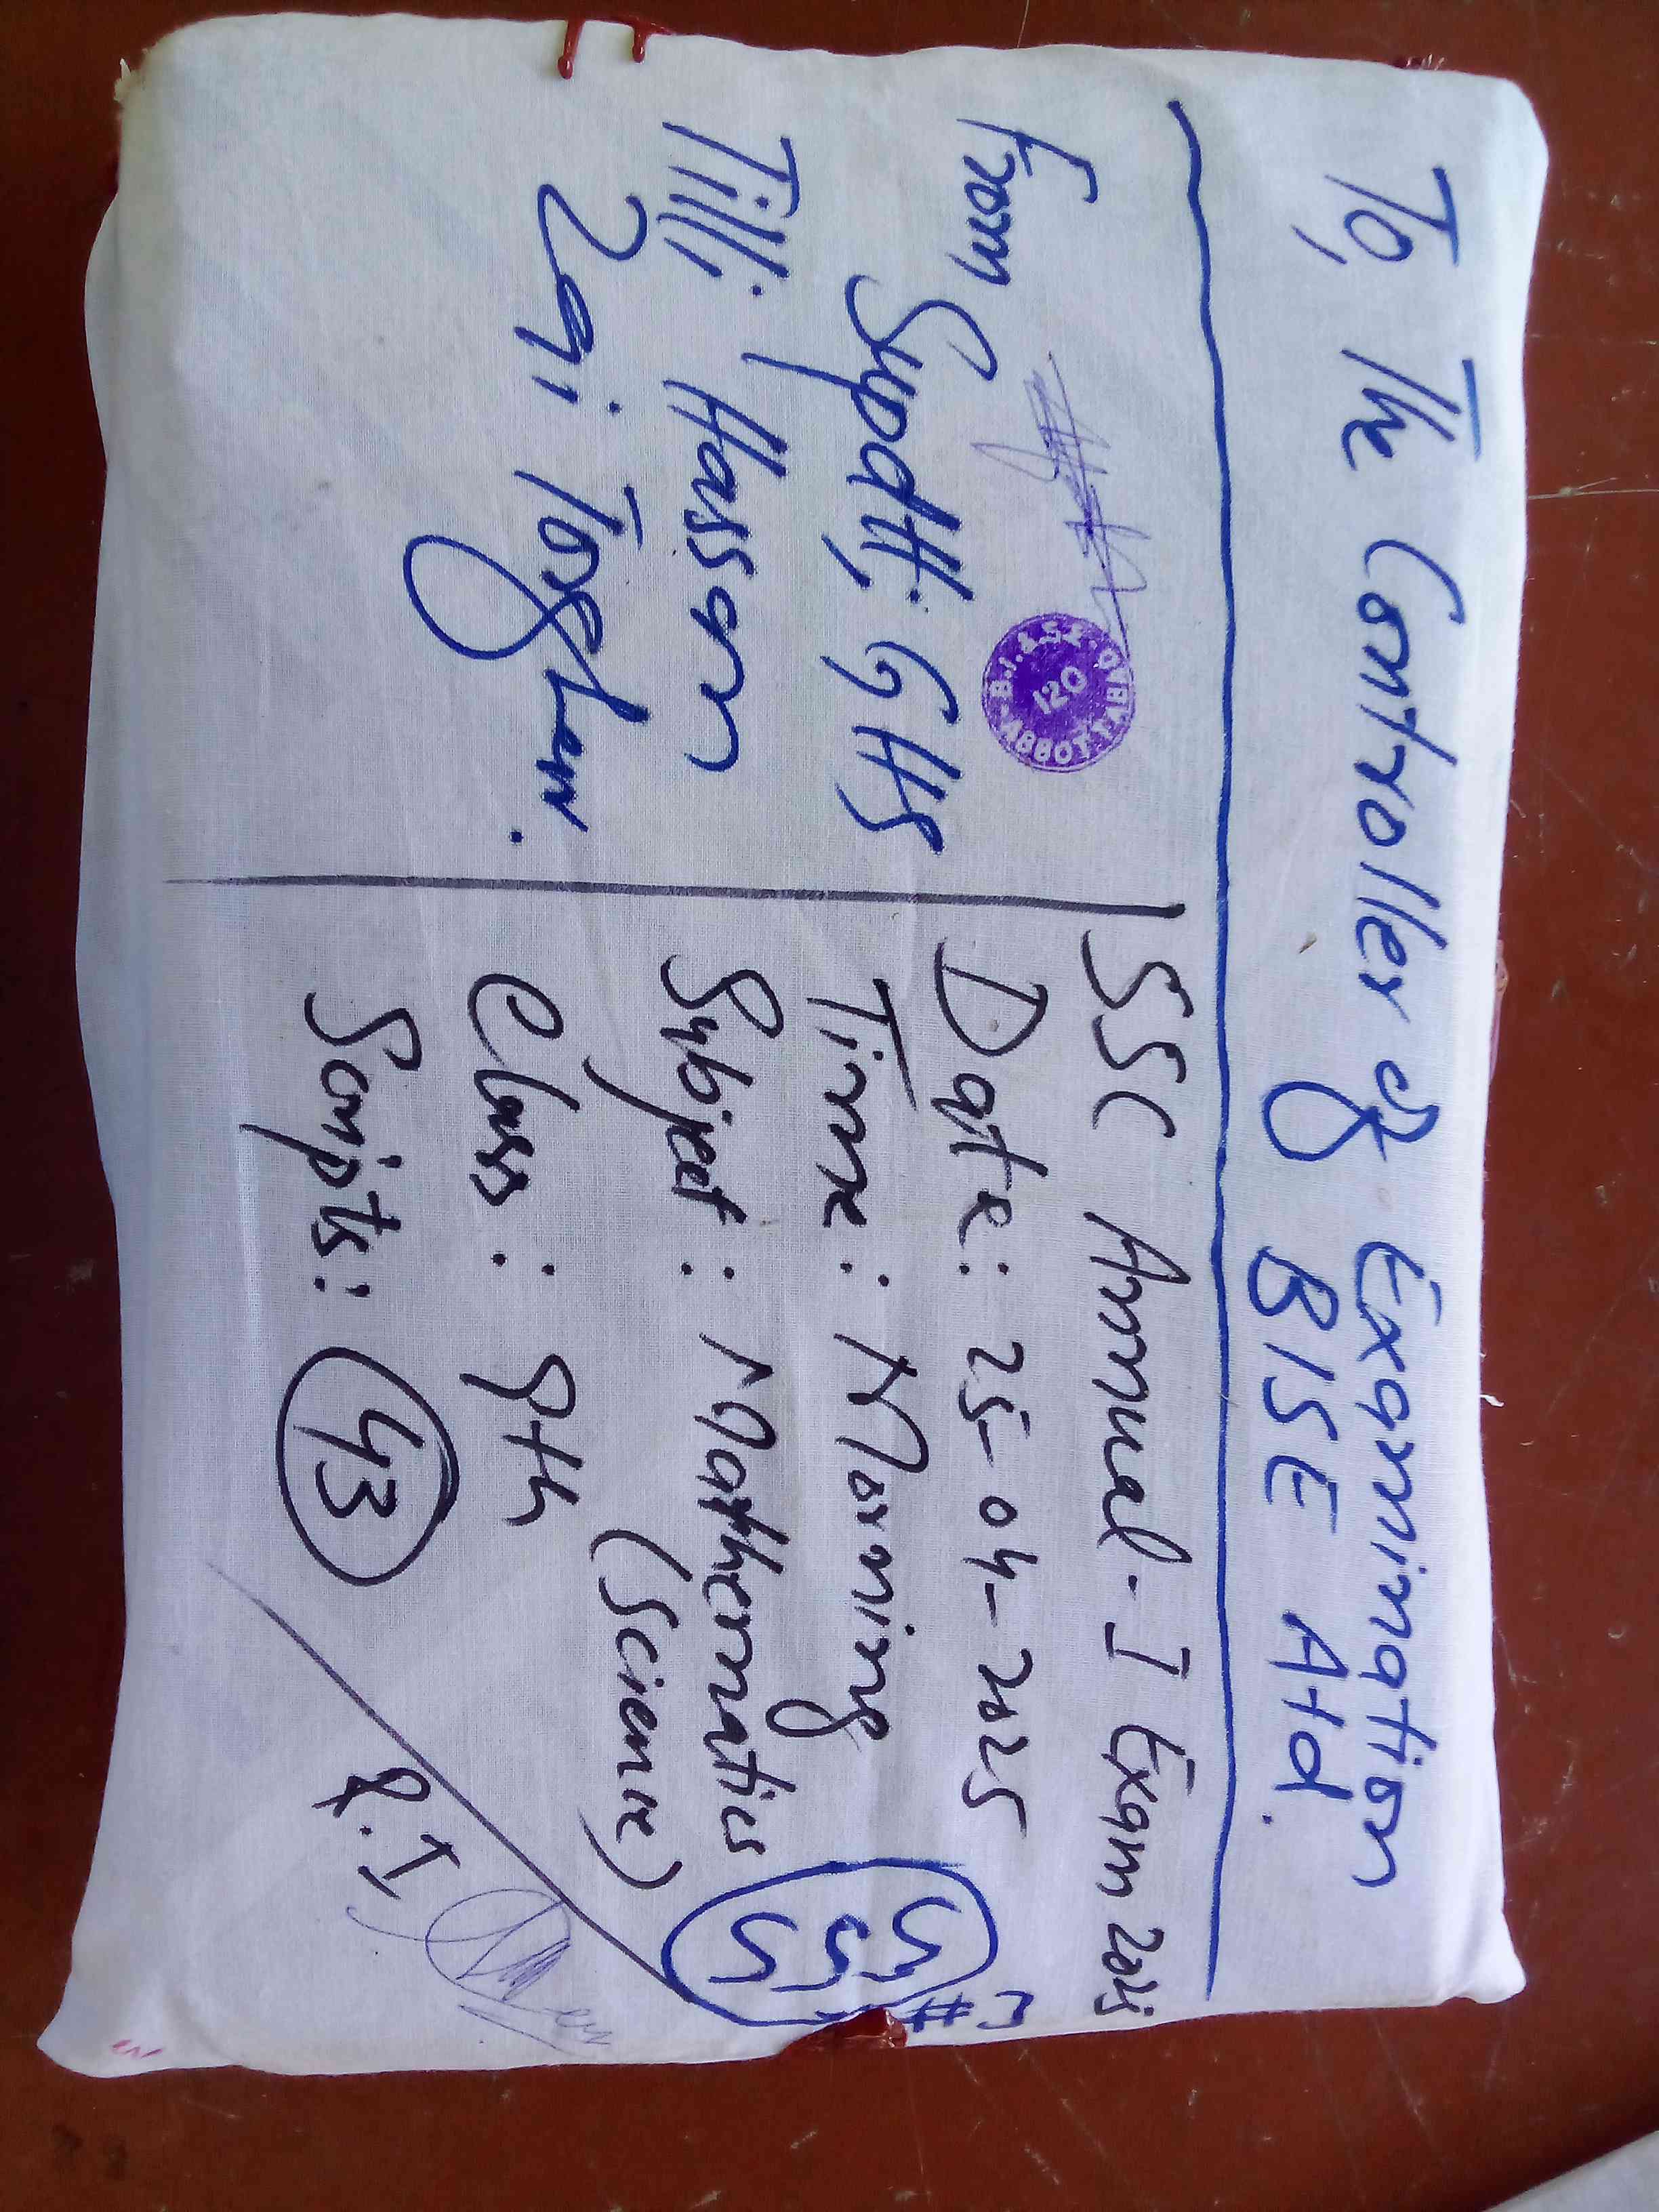 To, The Controller of Examination
BISE Atd.
From
Supdtt; GHS
Tilli Hassan
Zai Torghar.
B.I.&S.E
120
ABBOTTABAD
SSC Annual-I Exam 2025
Date: 25-04-2025
Time: Morning
Subject: Mathematics
(Science)
Class: 9th
Scripts: 43
C#
555
R.I